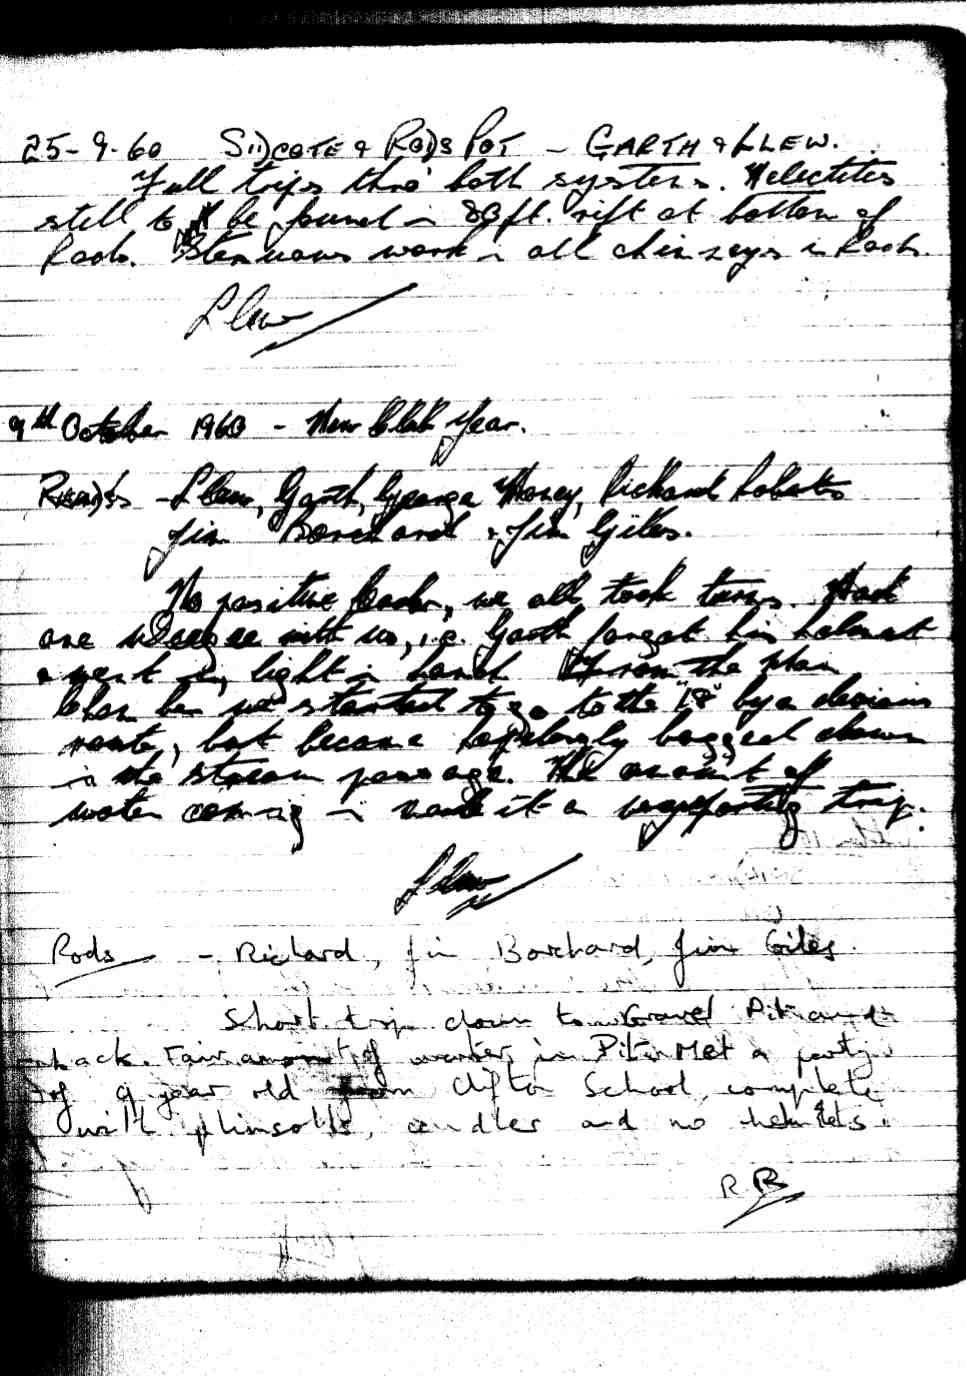 25-9-60 SIDCOTE & RODS POT - GARTH & LLEW.
Full trips thro' both systems. Helectites
still to be found in 80ft. rift at bottom of
Rods. Strenuous work in all chimneys in Rods.
Llew
9th October 1960 - New Club Year.
READS - Llew, Garth, George Honey, Richard Roberts
Jim Borchard & Jim Giles.
No positive leader, we all took turns. Had
one with us, i.e. Garth forgot his helmet
& went in, light in hand. From the main
Chamber we started to go to the "18" by a devious
route, but became hopelessly bogged down
in the stream passage. The amount of
water coming in made it a very sporting trip.
Llew
Rods - Richard, Jim Borchard, Jim Giles.
Short trip down to Gravel Pit and
back. Fair amount of water in Pit. Met a party
of 9 year old from Clifton School, complete
with plimsolls, candles and no helmets.
R.B